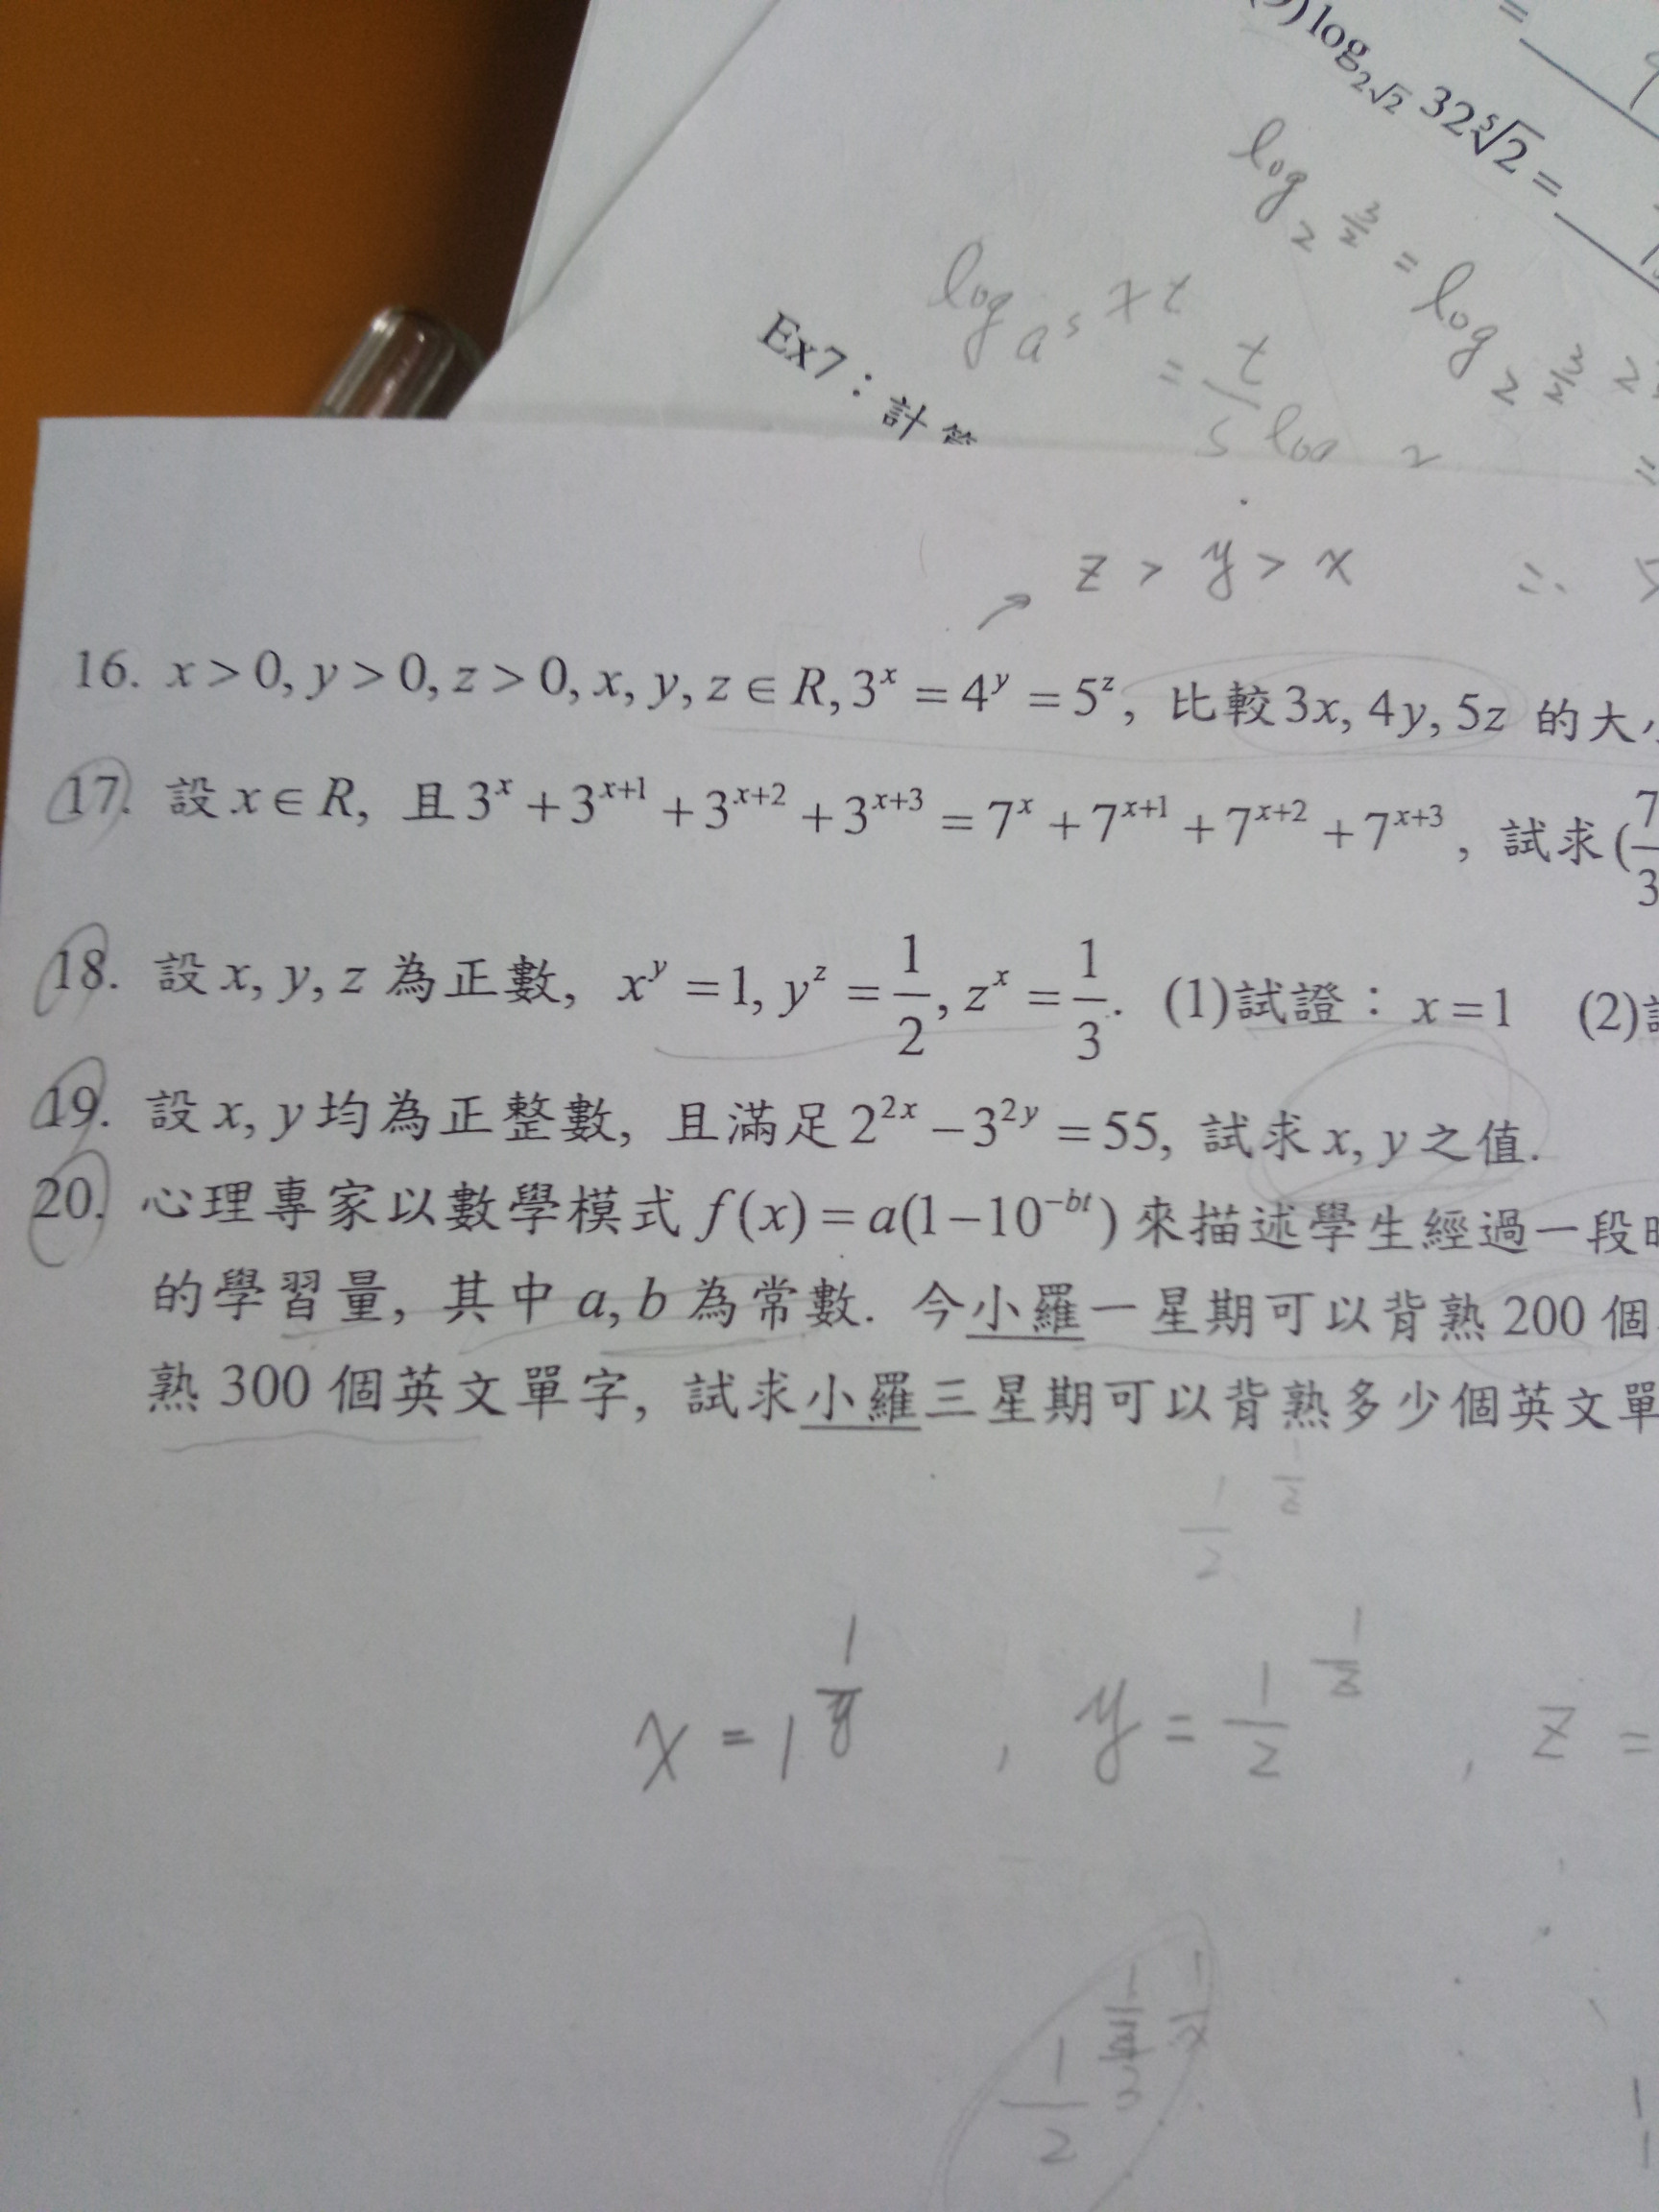 log_{2√2} 32⁵√2 =
log_{a^s} x^t
= t/s log
Ex7：計算
z > y > x ∴
16. x > 0, y > 0, z > 0, x, y, z ∈ R, 3^x = 4^y = 5^z, 比較3x, 4y, 5z 的大
17. 設 x ∈ R, 且 3^x + 3^{x+1} + 3^{x+2} + 3^{x+3} = 7^x + 7^{x+1} + 7^{x+2} + 7^{x+3}, 試求 (7/3
18. 設 x, y, z 為正數, x^y = 1, y^z = 1/2, z^x = 1/3. (1)試證：x = 1 (2)
19. 設 x, y 均為正整數, 且滿足 2^{2x} − 3^{2y} = 55, 試求 x, y 之值.
20. 心理專家以數學模式 f(x) = a(1−10^{−bt}) 來描述學生經過一段
的學習量, 其中 a, b 為常數. 今小羅一星期可以背熟 200 個
熟 300 個英文單字, 試求小羅三星期可以背熟多少個英文單
x = 1^{1/y} , y = 1/2^{1/z} , z =